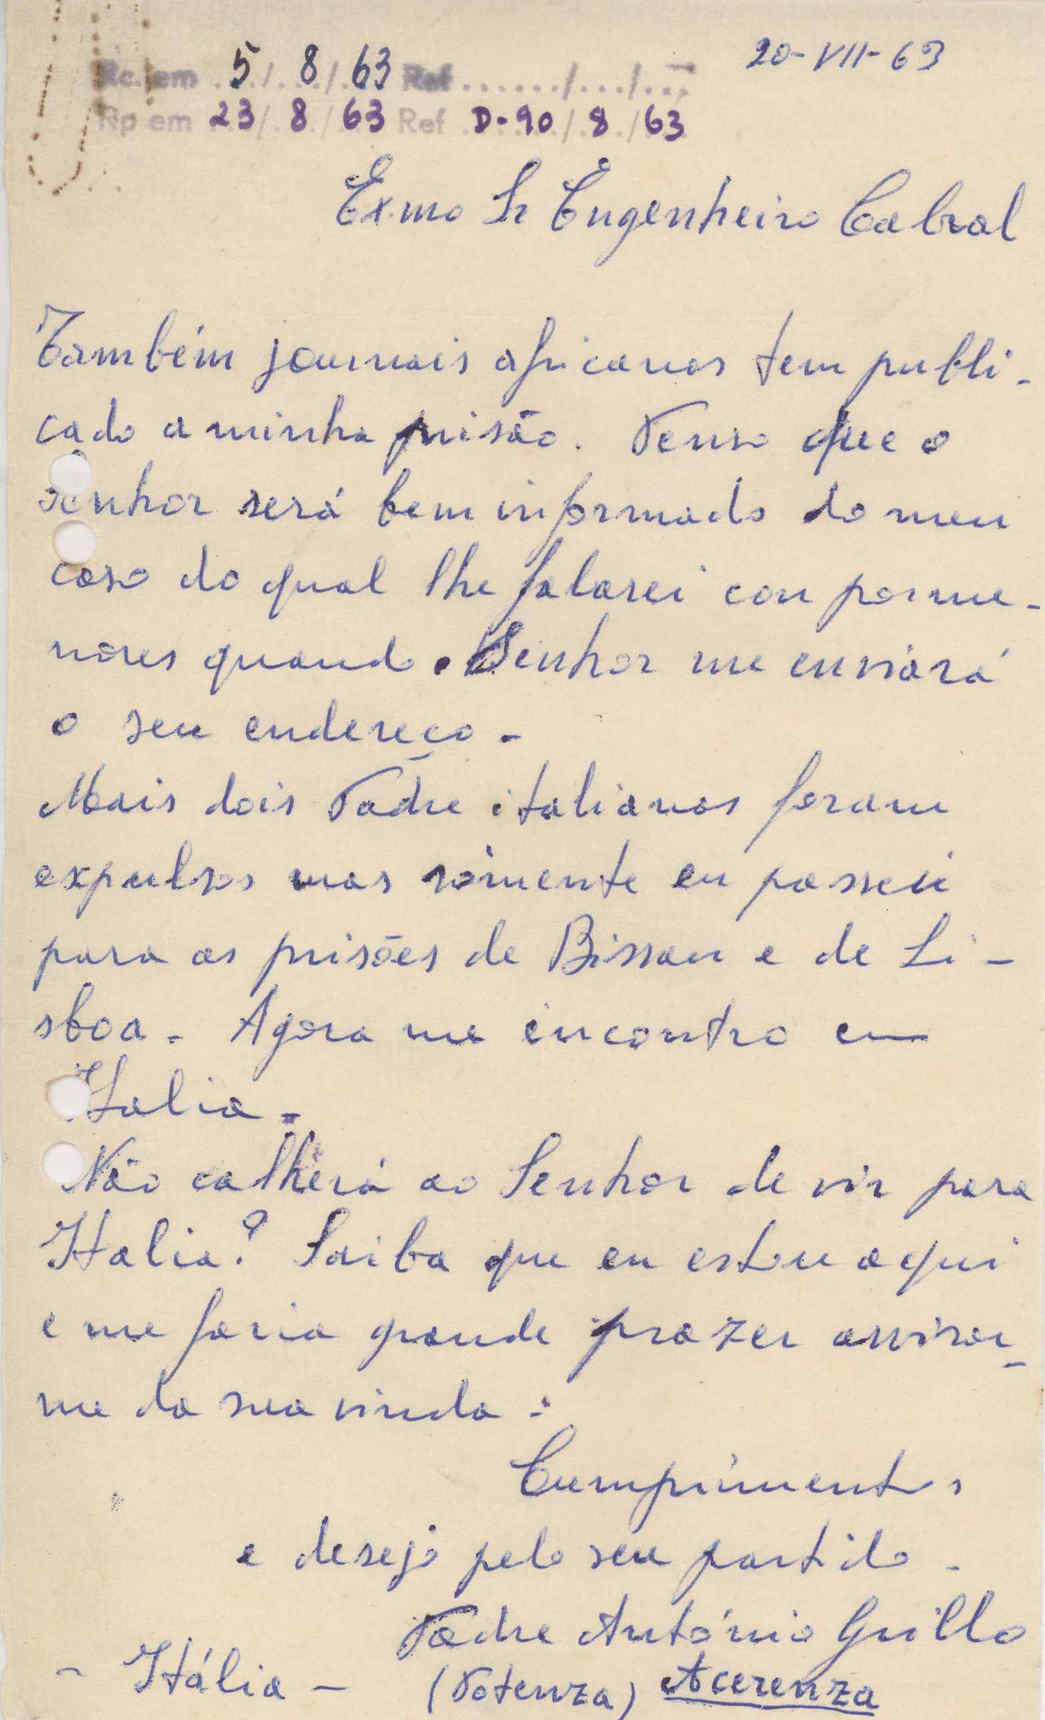 20-VII-63
Rc. em 5/8/63 Ref ....../.../...
Rp em 23/8/63 Ref D-90/8/63
Exmo Sr Engenheiro Cabral
Também journais africanos tem publi-
cado a minha prisão. Penso que o
senhor será bem informado do meu
caso do qual lhe falarei con porme-
nores quando o Senhor me enviará
o seu endereço -
Mais dois Padre italianos foram
expulsos mas sòmente eu passei
para as prisões de Bissau e de Li-
sboa - Agora me encontro em
Italia -
Não calherá ao Senhor de vir para
Italia? Saiba que eu estou aqui
e me faria grande prazer avisar-
me da sua vinda -
Cumprimentos
e desejo pelo seu partido -
Padre António Grillo
- Itália - (Potenza) Acerenza